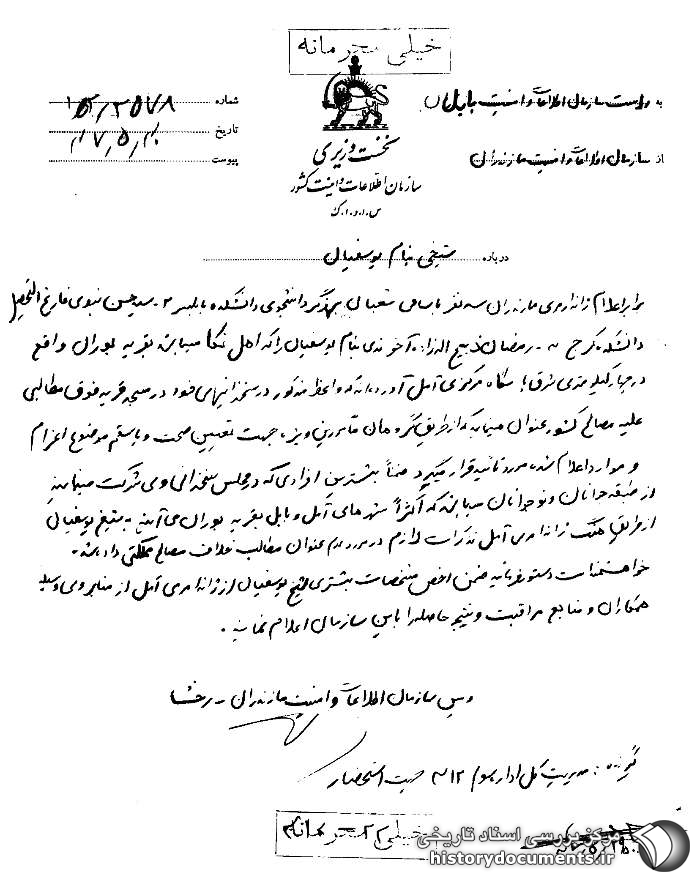 خیلی محرمانه
به ریاست سازمان اطلاعات و امنیت بابل
از سازمان اطلاعات و امنیت مازندران
نخست وزیری
سازمان اطلاعات و امنیت کشور
س.ا.و.ا.ک
شماره
تاریخ
پیوست
درباره شیخی بنام یوسفیان
برابر اعلام ژاندارمری مازندران سه نفر باسامی شعبان دانشجوی دانشکده بابلسر ۲- سید حسن نبوی فارغ التحصیل
دانشکده کرج ۳- رمضان ذبیح اله زاده آخوندی بنام یوسفیان را که اهل نکا میباشد بقریه بوران واقع
در چهار کیلومتری شرق پاسگاه مرکزی آمل آورده‌اند که واعظ مذکور در سخنرانیهای خود در مسجد قریه فوق مطالبی
علیه مصالح کشور عنوان مینماید که از طریق گروهان مامورین ویژه جهت تعیین صحت و یا سقم موضوع اعزام
و موارد اعلام شده مورد تائید قرار میگیرد ضمناً بیشترین افرادی که در مجلس سخنرانی وی شرکت مینمایند
از طبقه جوانان و نوجوانان میباشند که اکثراً از شهرهای آمل و بابل بقریه بوران می‌آیند به شیخ یوسفیان
از طریق هنگ ژاندارمری آمل تذکرات لازم در مورد عدم عنوان مطالب خلاف مصالح مملکتی داده شد.
خواهشمند است دستور فرمائید ضمن اخذ مشخصات بیشتری از شیخ یوسفیان از ژاندارمری آمل از منابر وی وسیله
همکاران و منابع مراقبت و نتیجه حاصله را باین سازمان اعلام نمایند.
رئیس سازمان اطلاعات و امنیت مازندران - رخشا
گیرنده: مدیریت کل اداره سوم ۳۱۲ جهت استحضار
خیلی محرمانه
مرکز بررسی اسناد تاریخی
historydocuments.ir